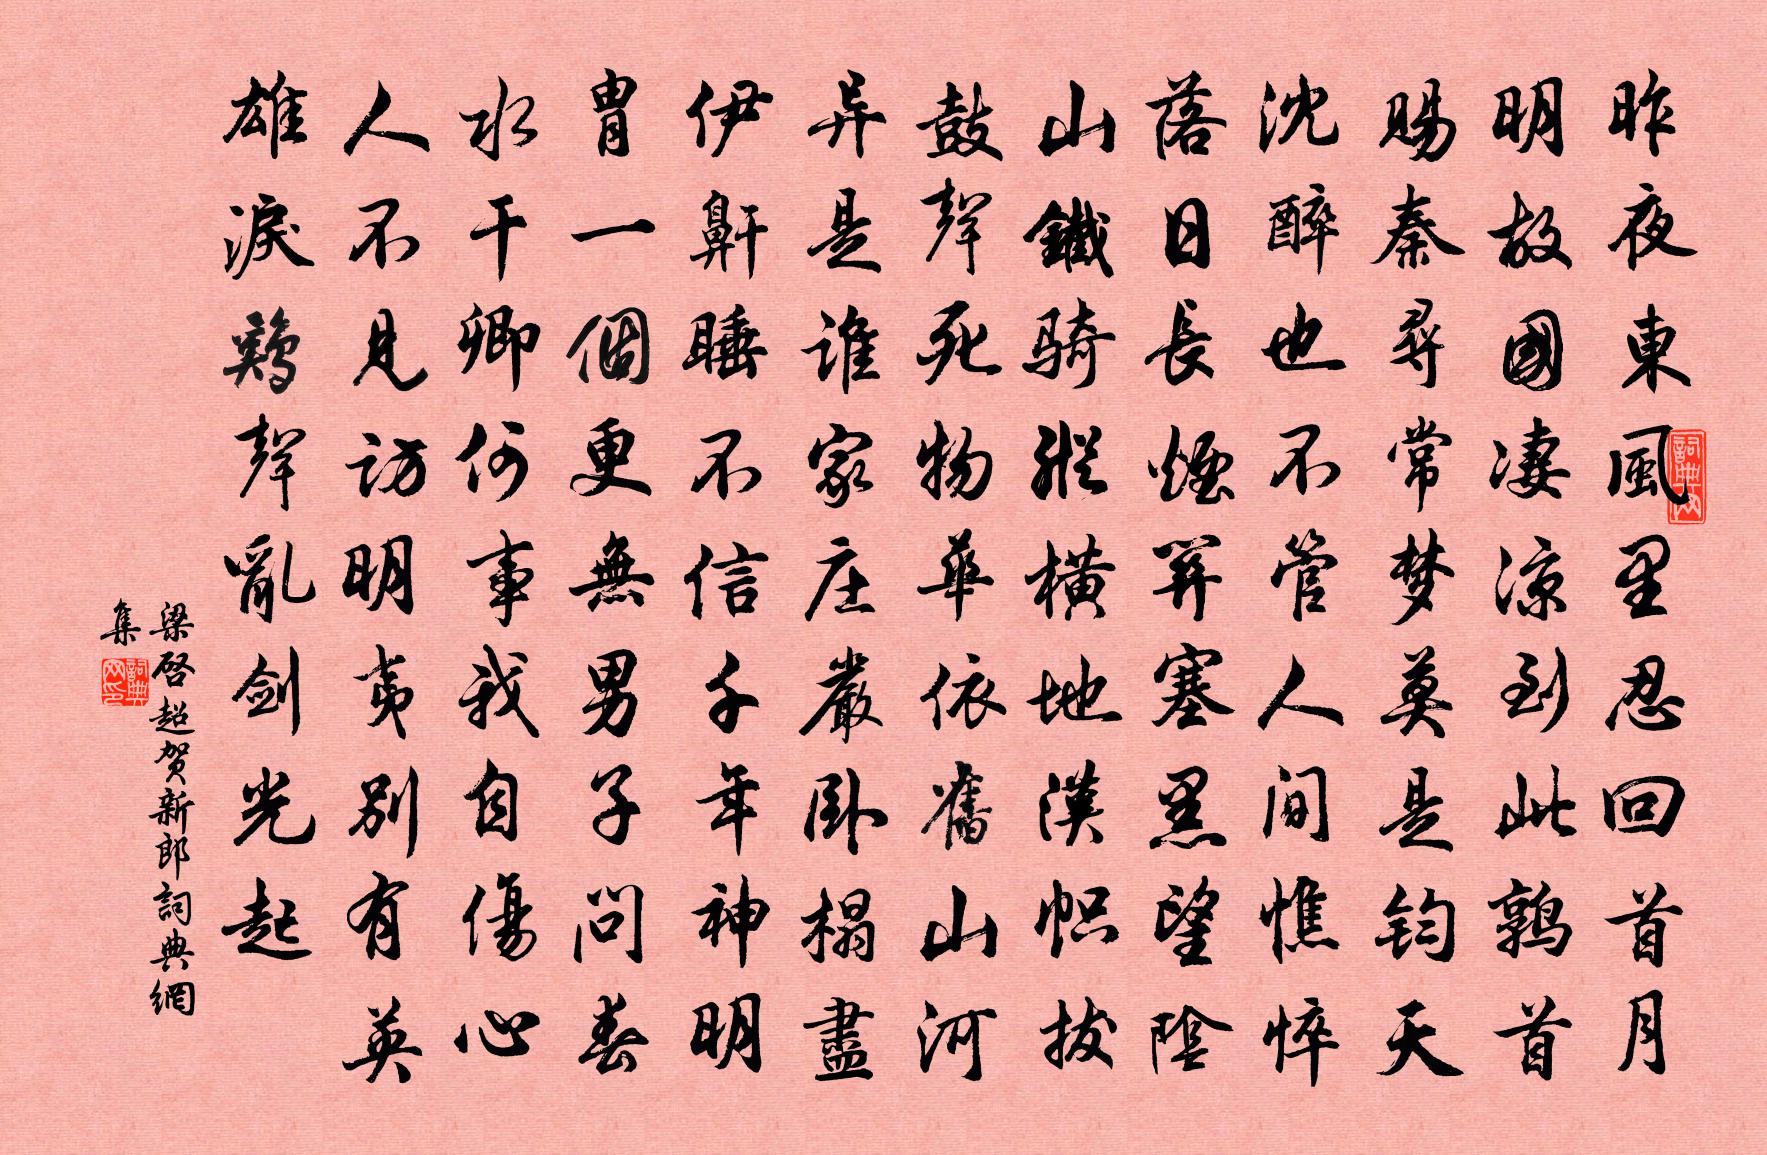 昨夜東風里忍回首月
明故國凄涼到此鶉首
賜秦尋常梦莫是钧天
沈醉也不管人间憔悴
落日長煙關塞黑望陰
山鐵骑縱横地漢帜拔
鼓聲死物華依舊山河
异是誰家庄嚴卧榻盡
伊鼾睡不信千年神明
胄一個更無男子問春
水干卿何事我自傷心
人不見访明夷别有英
雄淚鷄聲亂剑光起
梁启超贺新郎詞典網
集
詞典网
詞典网印